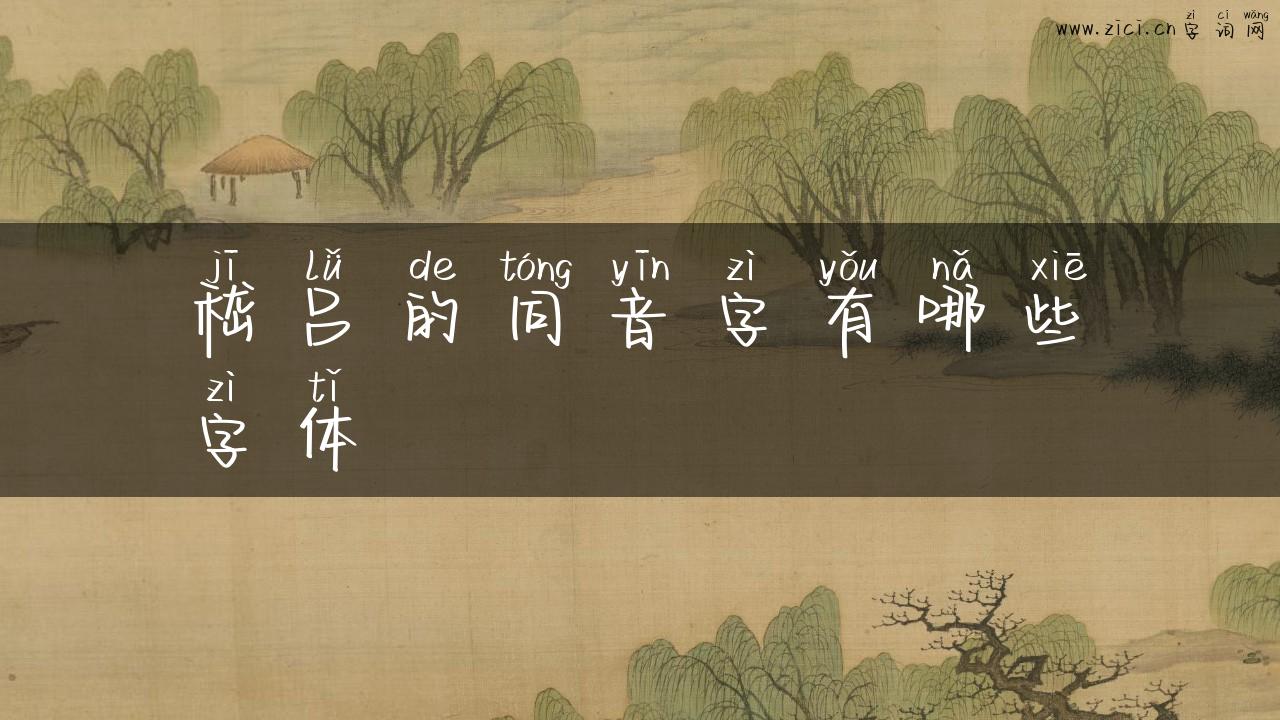 zì cí wǎng
www.zici.cn字词网
jī lǚ de tóng yīn zì yǒu nǎ xiē
嵇吕的同音字有哪些
zì tǐ
字体